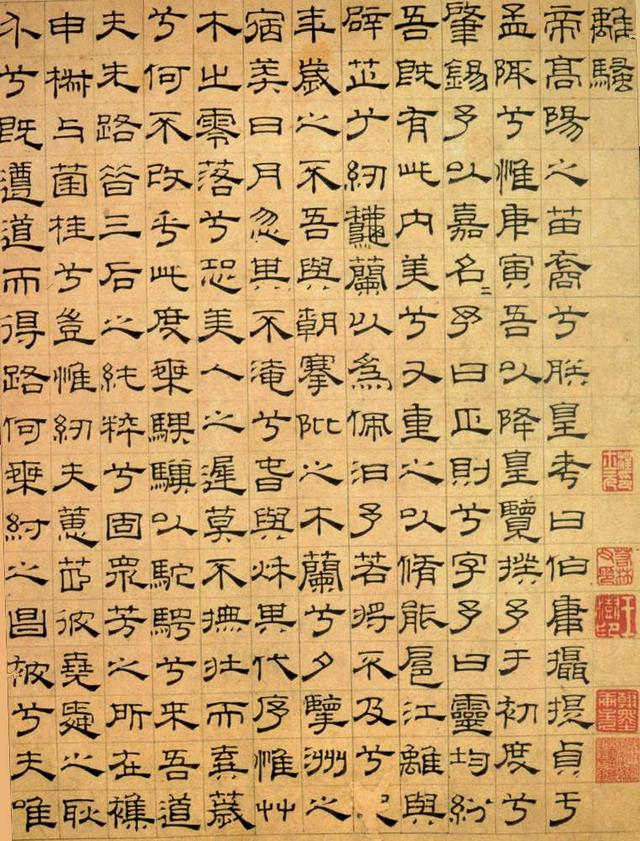 離騷
帝高陽之苗裔兮朕皇考曰伯庸攝提貞于
孟陬兮惟庚寅吾以降皇覽揆予于初度兮
肇錫予以嘉名〻予曰正則兮字予曰靈均紛
吾既有此內美兮又重之以脩能扈江離與
辟芷兮紉龝蘭以為佩汩予若將不及兮
年歲之不吾與朝搴阰之木蘭兮夕擥洲之
宿莽日月忽其不淹兮春與秋其代序惟艸
木之零落兮恐美人之遲莫不撫壯而棄薉
兮何不改乎此度乘騏驥以駝騁兮來吾道
夫先路昔三后之純粹兮固眾芳之所在襍
申椒与菌桂兮豈惟紉夫蕙茝彼堯舜之耿
介兮既遵道而得路何桀紂之昌被兮夫唯